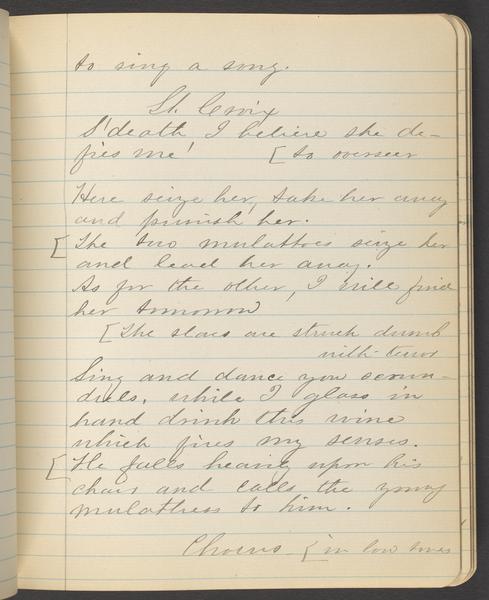 to sing a song.
St. Croix
S'death I believe she de-
fies me! [to overseer
Here seize her, take her away
and punish her.
[The two mulattoes seize her
and lead her away.
As for the other, I will find
her tomorrow
[The slaves are struck dumb
with terror
Sing and dance you scoun-
drels, while I glass in
hand drink this wine
which fires my senses.
[He falls heavily upon his
chair and calls the young
mulattress to him.
Chorus [in low tones